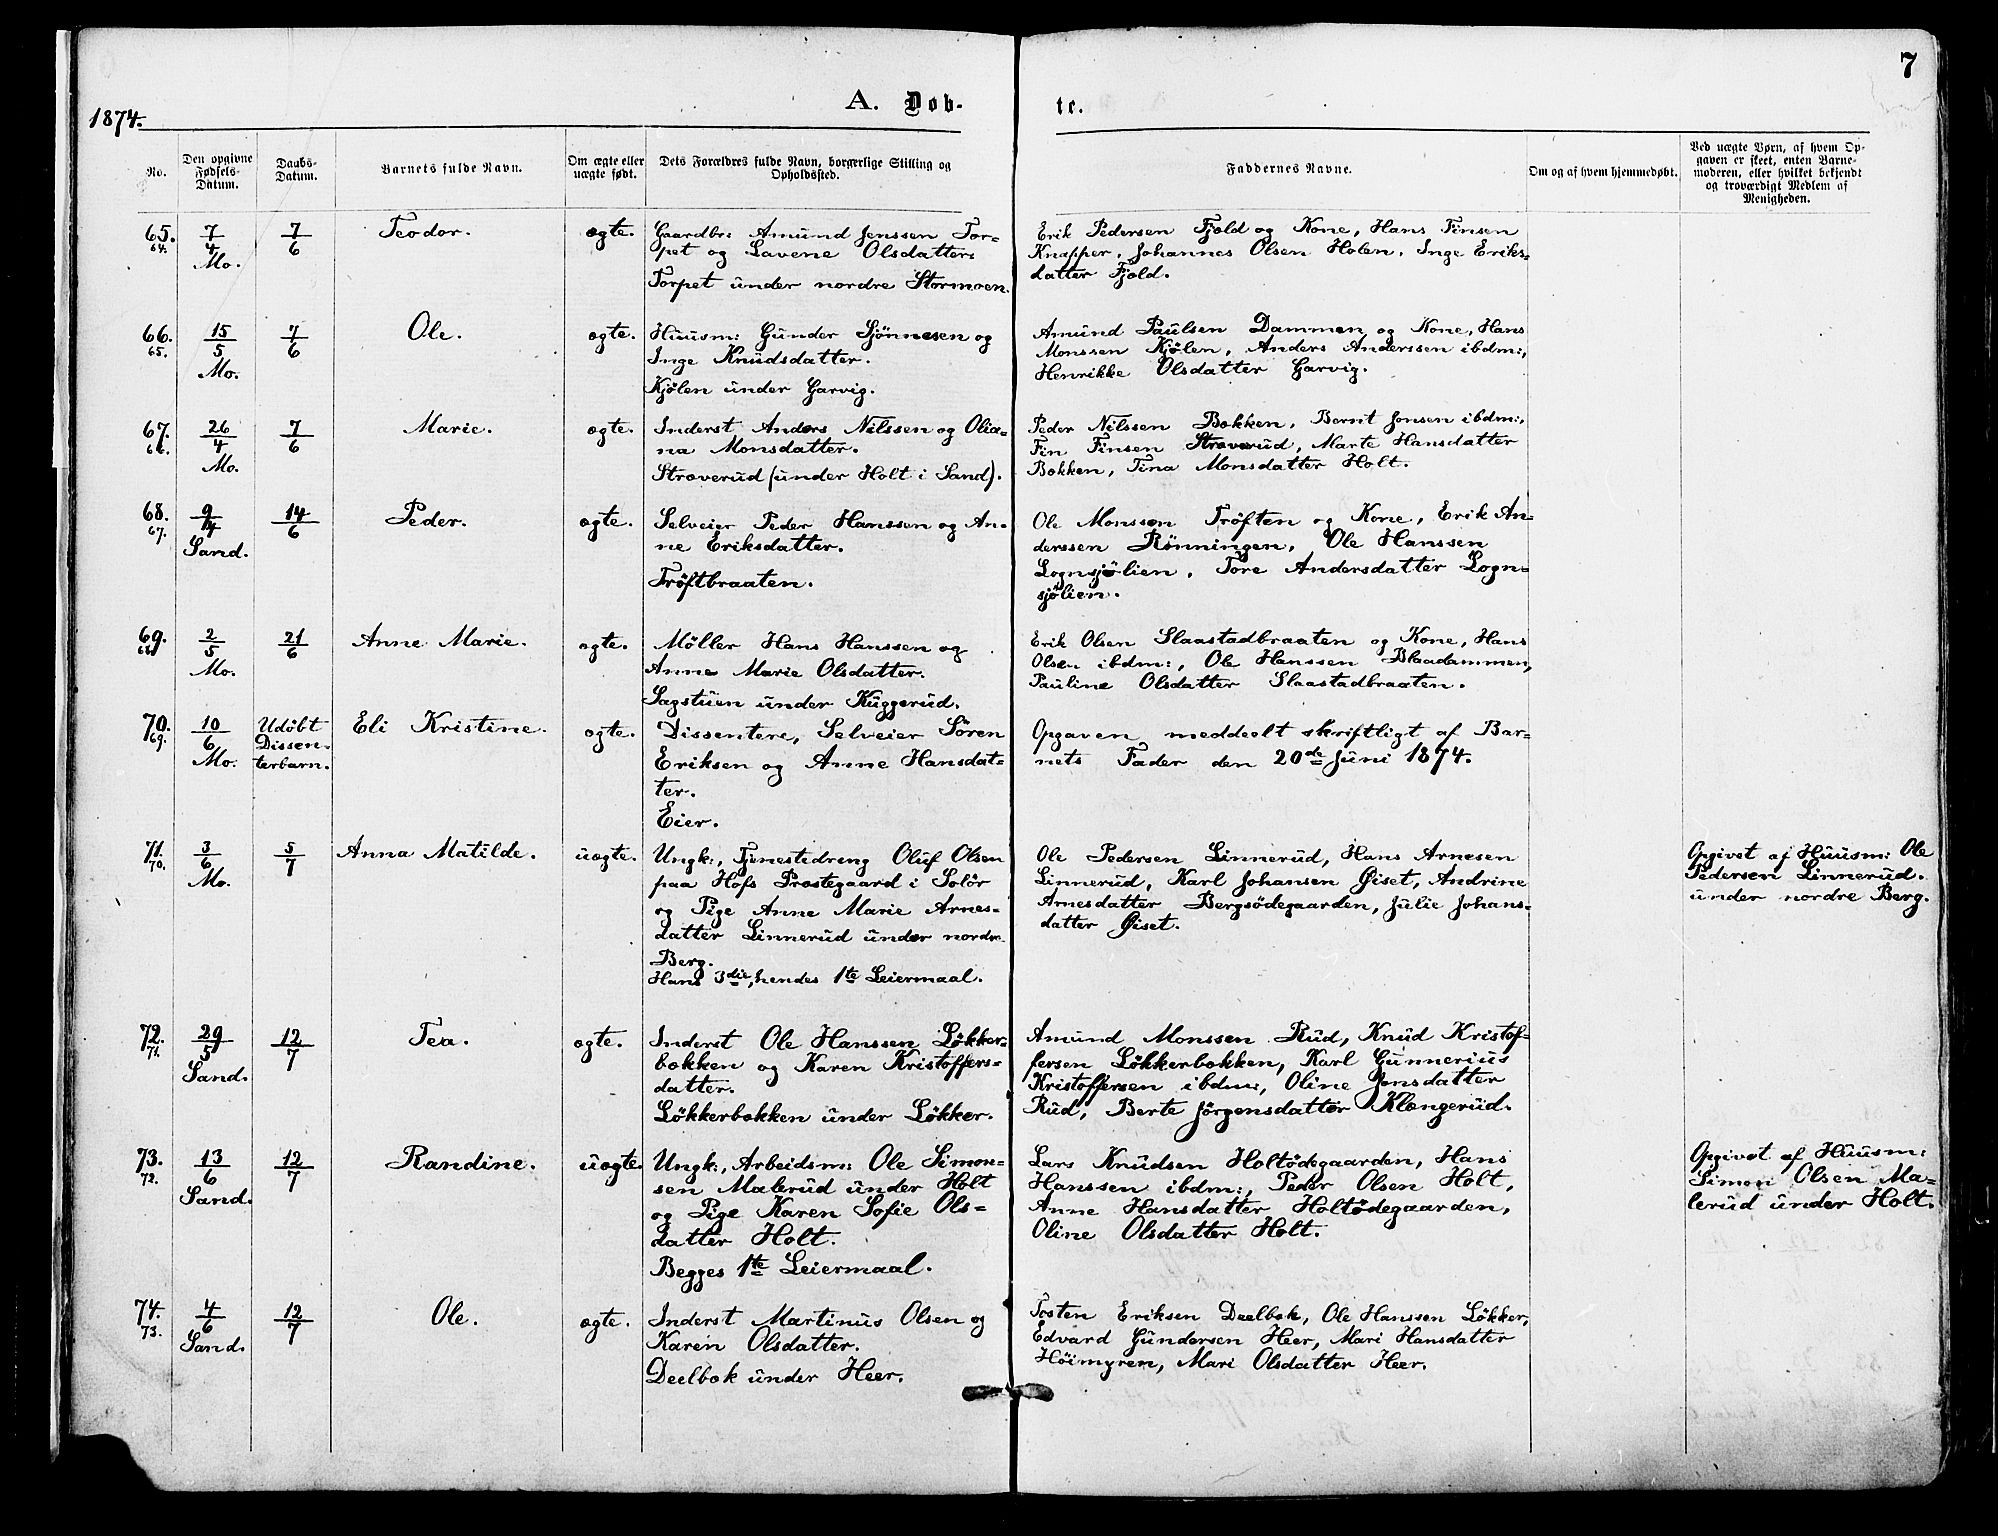 7
1874.
A. Døb-
te.
No.
Den opgivne
Fødsels-
Datum.
Daabs-
Datum.
Barnets fulde Navn.
Om ægte eller
uægte født.
Dets Forældres fulde Navn, borgerlige Stilling og
Opholdssted.
Faddernes Navne.
Om og af hvem hjemmedøbt.
Ved uægte Børn, af hvem Op-
gaven er skeet, enten Barne-
moderen, eller hvilket bekjendt
og troværdigt Medlem af
Menigheden.
65.
64.
7/4
Mo.
7/6
Teodor.
ægte.
Gaardbr: Amund Jenssen Tor-
pet og Lavene Olsdatter.
Torpet under nordre Stormoen.
Erik Pedersen Fjeld og Kone, Hans Finsen
Knapper, Johannes Olsen Holen, Inge Eriks-
datter Fjeld.
66.
65.
15/5
Mo.
7/6
Ole.
ægte.
Huusm: Gunder Sjønnesen og
Inge Knudsdatter.
Kjølen under Garvig.
Amund Paulsen Dammen og Kone, Hans
Monssen Kjølen, Anders Anderssen ibdm:,
Henrikke Olsdatter Garvig.
67.
66.
26/4
Mo.
7/6
Marie.
ægte.
Inderst Anders Nilssen og Olia-
na Monsdatter.
Stræverud (under Holt i Sand).
Peder Nilssen Bækken, Bernt Jonsen ibdm:,
Fin Finsen Stræverud, Marte Hansdatter
Bækken, Tina Monsdatter Holt.
68.
67.
9/4
Sand.
14/6
Peder.
ægte.
Selveier Peder Hanssen og An-
ne Eriksdatter.
Trøftbraaten.
Ole Monssen Trøften og Kone, Erik An-
derssen Rønningen, Ole Hanssen
Lognsjølien, Tore Andersdatter Logn-
sjølien.
69.
68.
2/5
Mo.
21/6
Anne Marie.
ægte.
Møller Hans Hanssen og
Anne Marie Olsdatter.
Sagstuen under Kuggerud.
Erik Olsen Slaastadbraaten og Kone, Hans
Olsen ibdm:, Ole Hanssen Blaadammen,
Pauline Olsdatter Slaastadbraaten.
70.
69.
10/6
Mo.
Udøbt
Dissen-
terbarn.
Eli Kristine.
ægte.
Dissentere, Selveier Søren
Eriksen og Anne Hansdat-
ter.
Eier.
Opgaven meddeelt skriftligt af Bar-
nets Fader den 20de Juni 1874.
71.
70.
3/6
Mo.
5/7
Anna Matilde.
uægte.
Ungk:, Tjenestedreng Oluf Olsen
paa Hofs Præstegaard i Solør
og Pige Anne Marie Arnes-
datter Linnerud under nordre
Berg.
Hans 3die, hendes 1te Leiermaal.
Ole Pedersen Linnerud, Hans Arnesen
Linnerud, Karl Johansen Øiset, Andrine
Arnesdatter Bergsødegaarden, Julie Johans-
datter Øiset.
Opgivet af Huusm: Ole
Pedersen Linnerud.
under nordre Berg.
72.
71.
29/5
Sand.
12/7
Tea.
ægte.
Inderst Ole Hanssen Løkker-
bækken og Karen Kristoffers-
datter.
Løkkerbækken under Løkker.
Amund Monssen Rud, Knud Kristof-
fersen Løkkerbækken, Karl Gunnerius
Kristoffersen ibdm:, Oline Jonsdatter
Rud, Berte Jørgensdatter Klængerud.
73.
72.
13/6
Sand.
12/7
Randine.
uægte.
Ungk:, Arbeidsm: Ole Simon-
sen Malerud under Holt
og Pige Karen Sofie Ols-
datter Holt.
Begges 1te Leiermaal.
Lars Knudsen Holtødegaarden, Hans
Hanssen ibdm:, Peder Olsen Holt,
Anne Hansdatter Holtødegaarden,
Oline Olsdatter Holt.
Opgivet af Huusm:
Simon Olsen Ma-
lerud under Holt.
74.
73.
4/6
Sand.
12/7
Ole.
ægte.
Inderst Martinus Olsen og
Karen Olsdatter.
Deelbæk under Heer.
Tosten Eriksen Deelbæk, Ole Hanssen Løkker,
Edvard Gundersen Heer, Mari Hansdatter
Høimyren, Mari Olsdatter Heer.